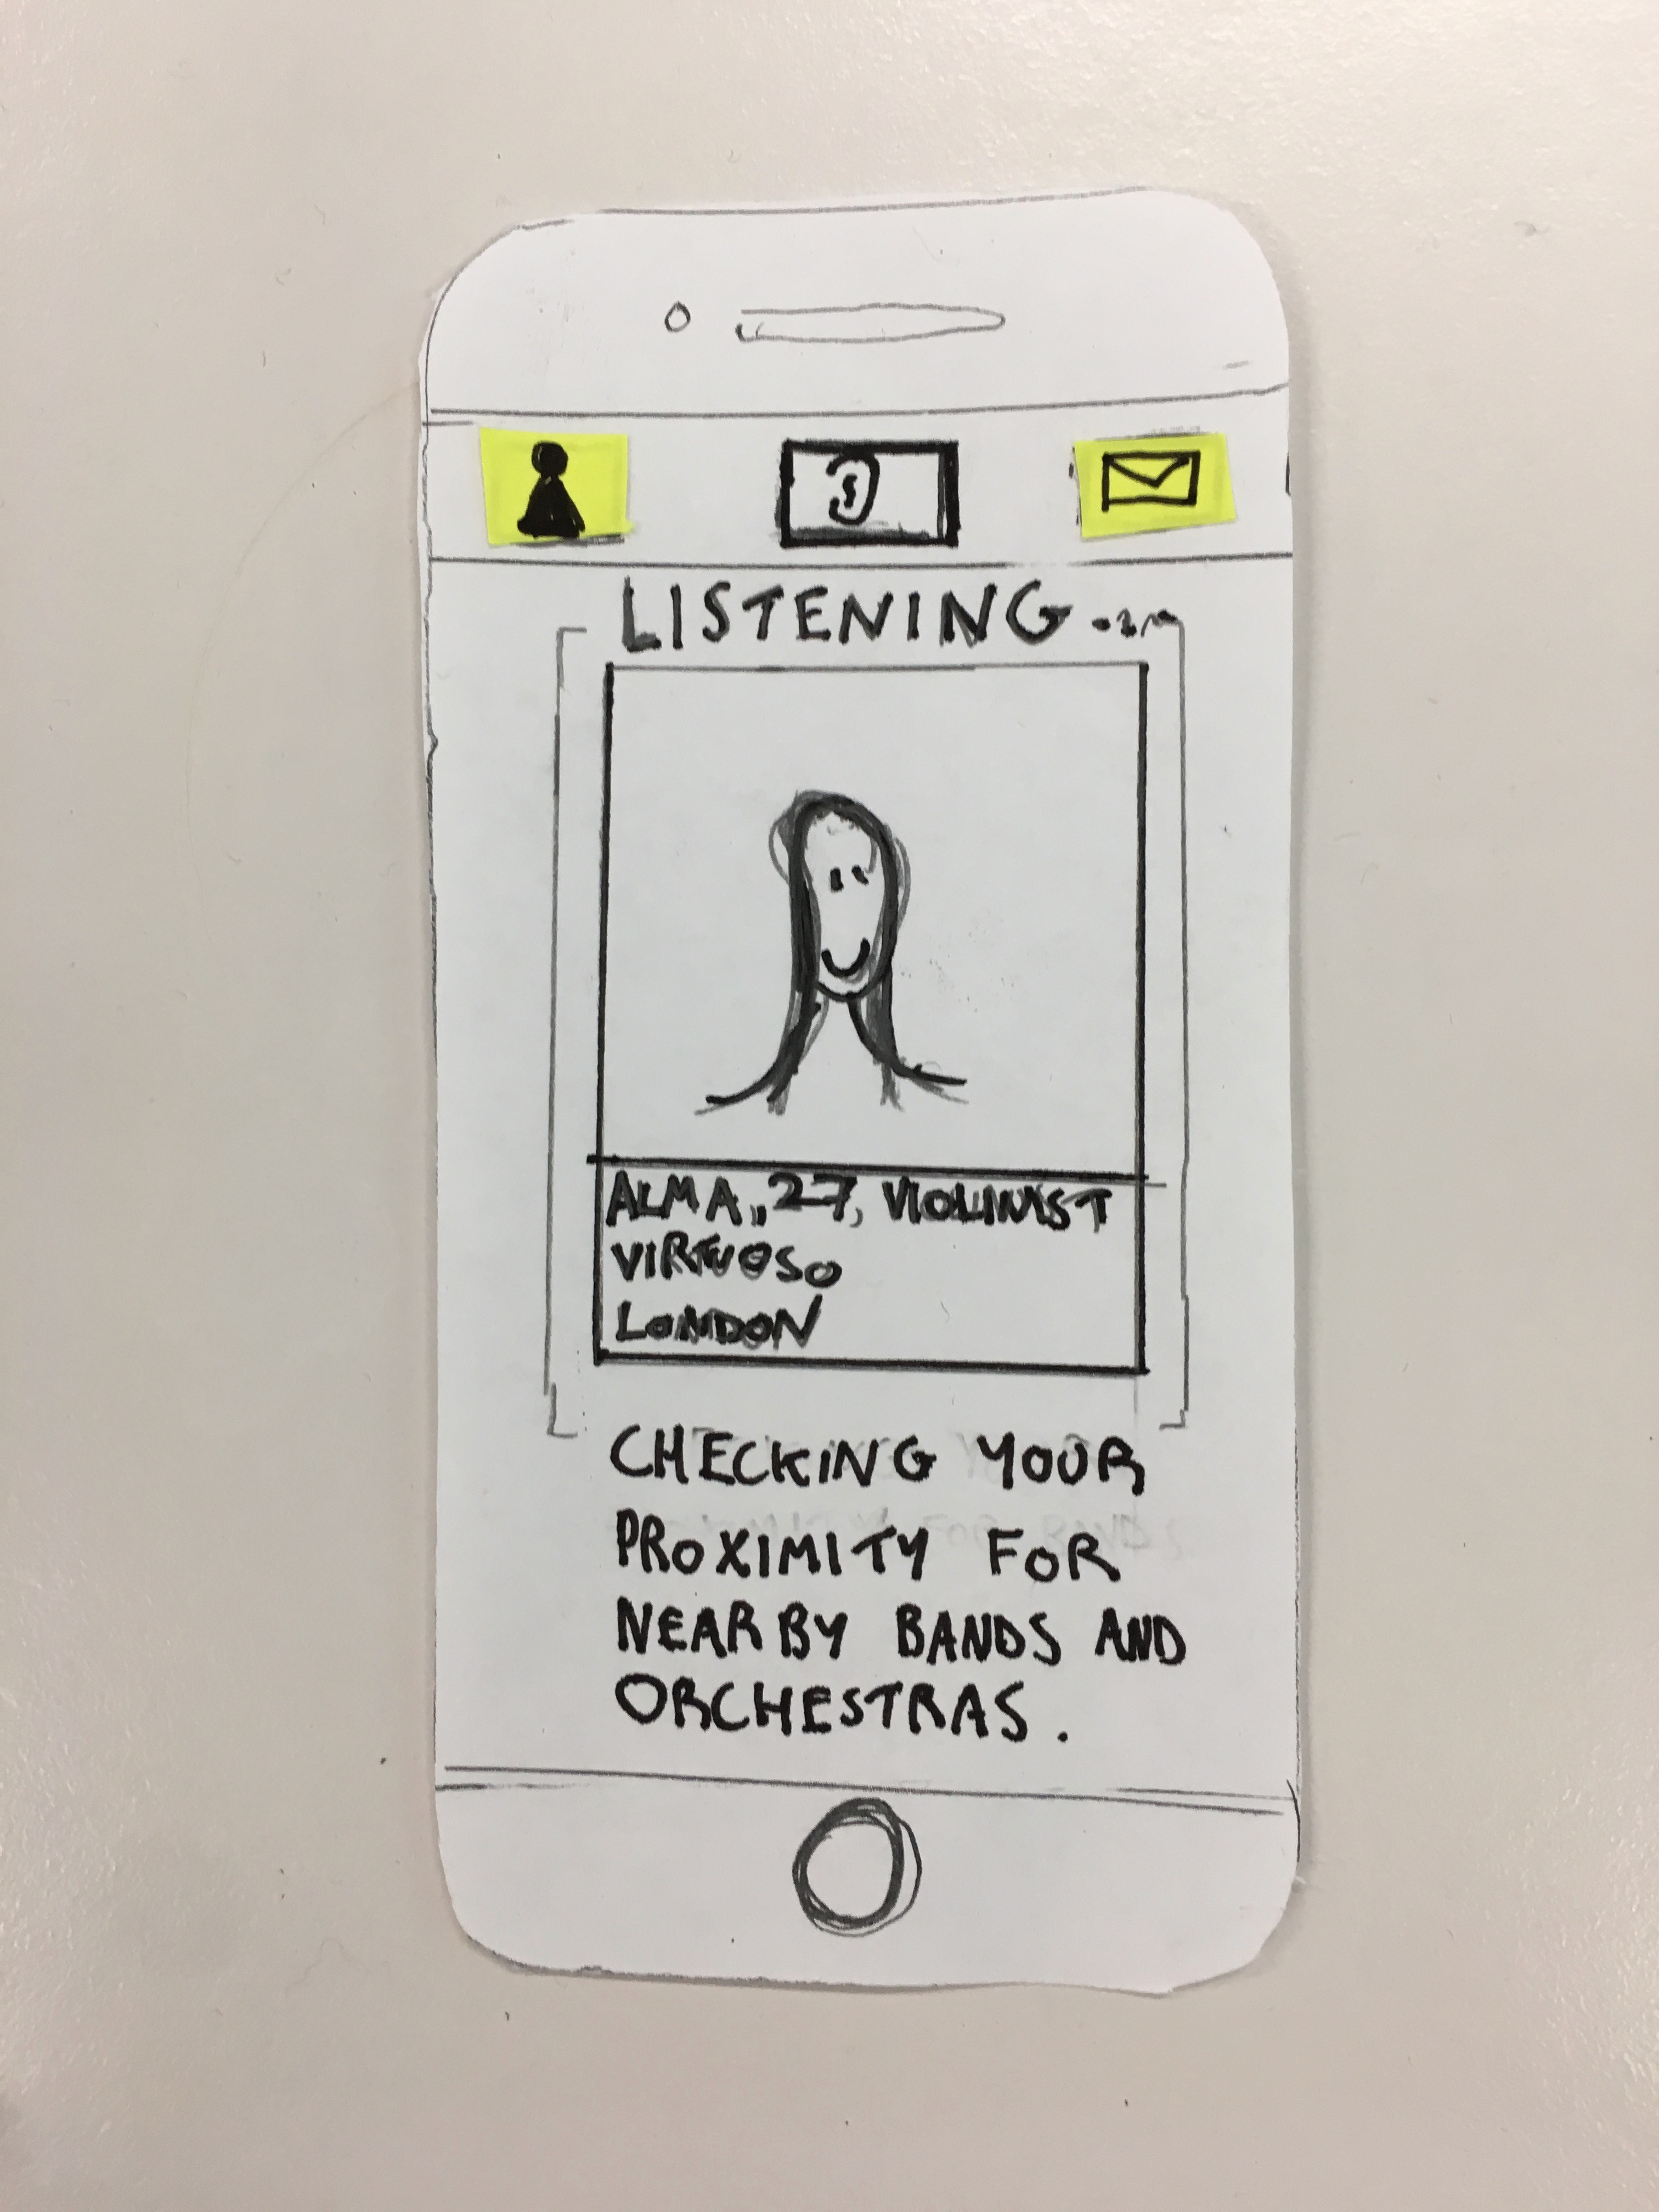 LISTENING...
ALMA, 27, VIOLINIST
VIRTUOSO
LONDON
CHECKING YOUR
PROXIMITY FOR
NEARBY BANDS AND
ORCHESTRAS.